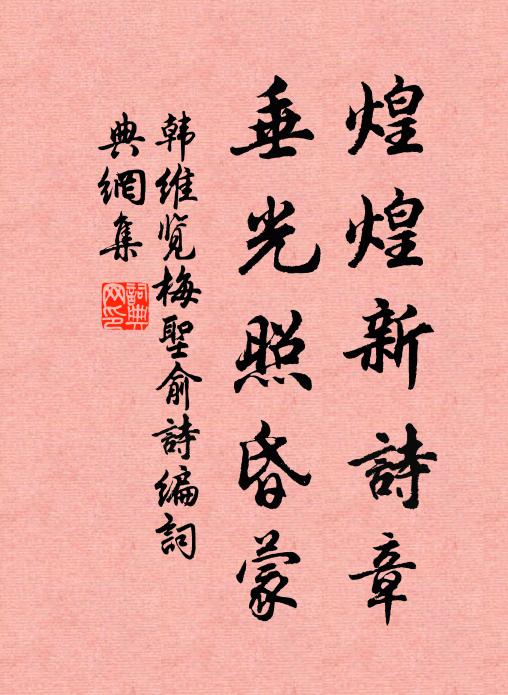 煌煌新詩章
垂光照昏蒙
韩维览梅聖俞詩编詞
典網集
詞典網印